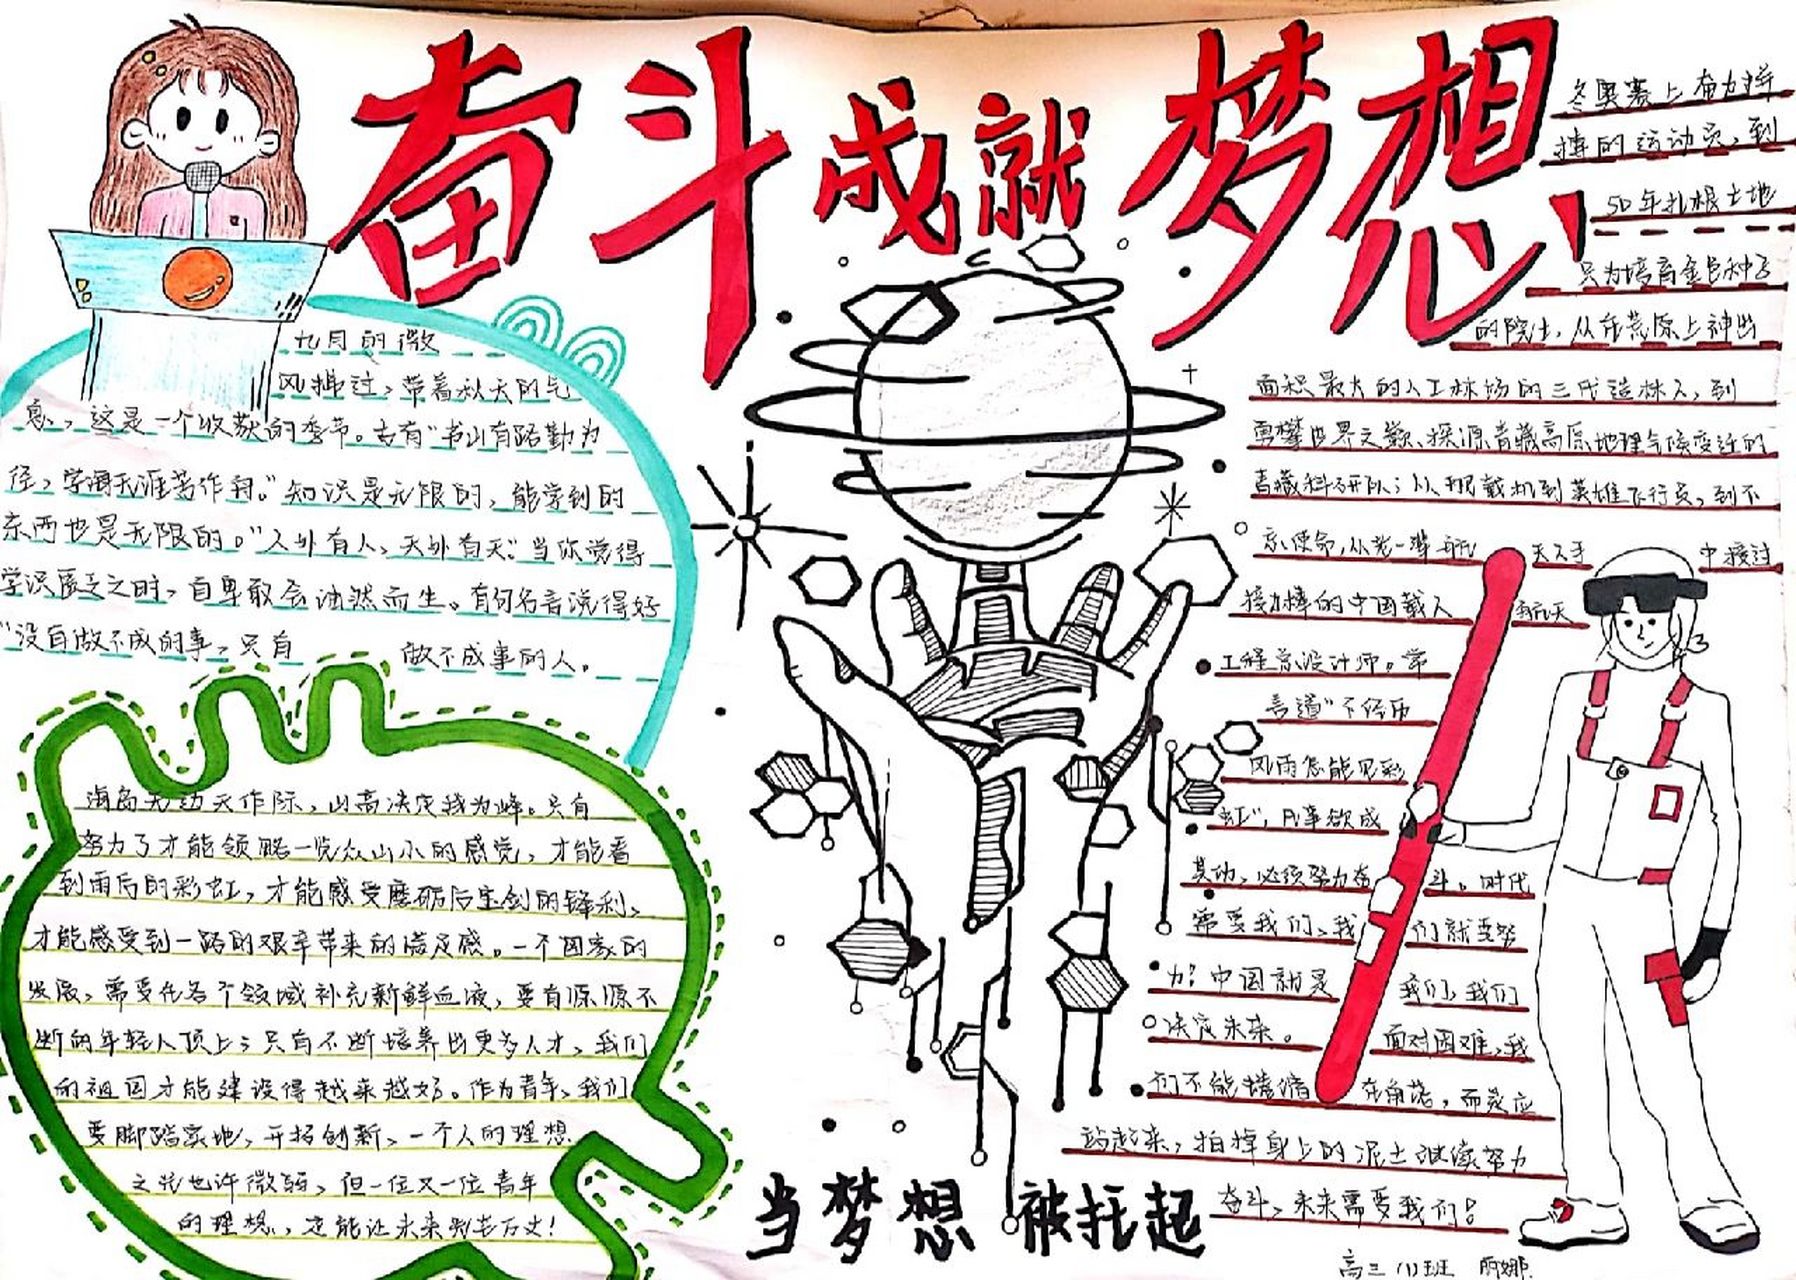 奋斗成就梦想
九月的微
风拂过，带着秋天的气
息，这是一个收获的季节。古有“书山有路勤为
径，学海无涯苦作舟。”知识是无限的，能学到的
东西也是无限的。“人外有人，天外有天”。当你觉得
学识匮乏之时，自卑敢会油然而生。有句名言说得好
“没有做不成的事，只有 做不成事的人。
海岛无边天作际，山高决定我为峰。只有
努力了才能领略一览众山小的感觉，才能看
到雨后的彩虹，才能感受磨砺后宝剑的锋利，
才能感受到一路的艰辛带来的满足感。一个国家的
发展，需要在各个领域补充新鲜血液，要有源源不
断的年轻人顶上；只有不断培养出更多人才，我们
的祖国才能建设得越来越好。作为青年，我们
要脚踏实地，开拓创新，一个人的理想
之光也许微弱，但一位又一位青年
的理想，定能让未来光芒万丈！
当梦想被托起
冬奥赛上奋力拼
搏的运动员，到
50年扎根土地
只为培育金色种子
的院士，从在荒原上种出
面积最大的人工林场的三代造林人，到
勇攀世界之巅、探源青藏高原地理气候变迁的
青藏科研队；从 机到英雄飞行员，到不
使命，从老一辈航天人手中接过
接力棒的中国载人航天
工程总设计师。常
言道“不经历
风雨怎能见彩
虹”，凡事欲成
其功，必须努力奋斗。时代
需要我们，我们就要努
力！中国就是我们，我们
决定未来。面对困难，我
们不能 在角落，而是应
站起来，拍掉身上的泥土继续努力
奋斗，未来需要我们！
高三(1)班 丽娜